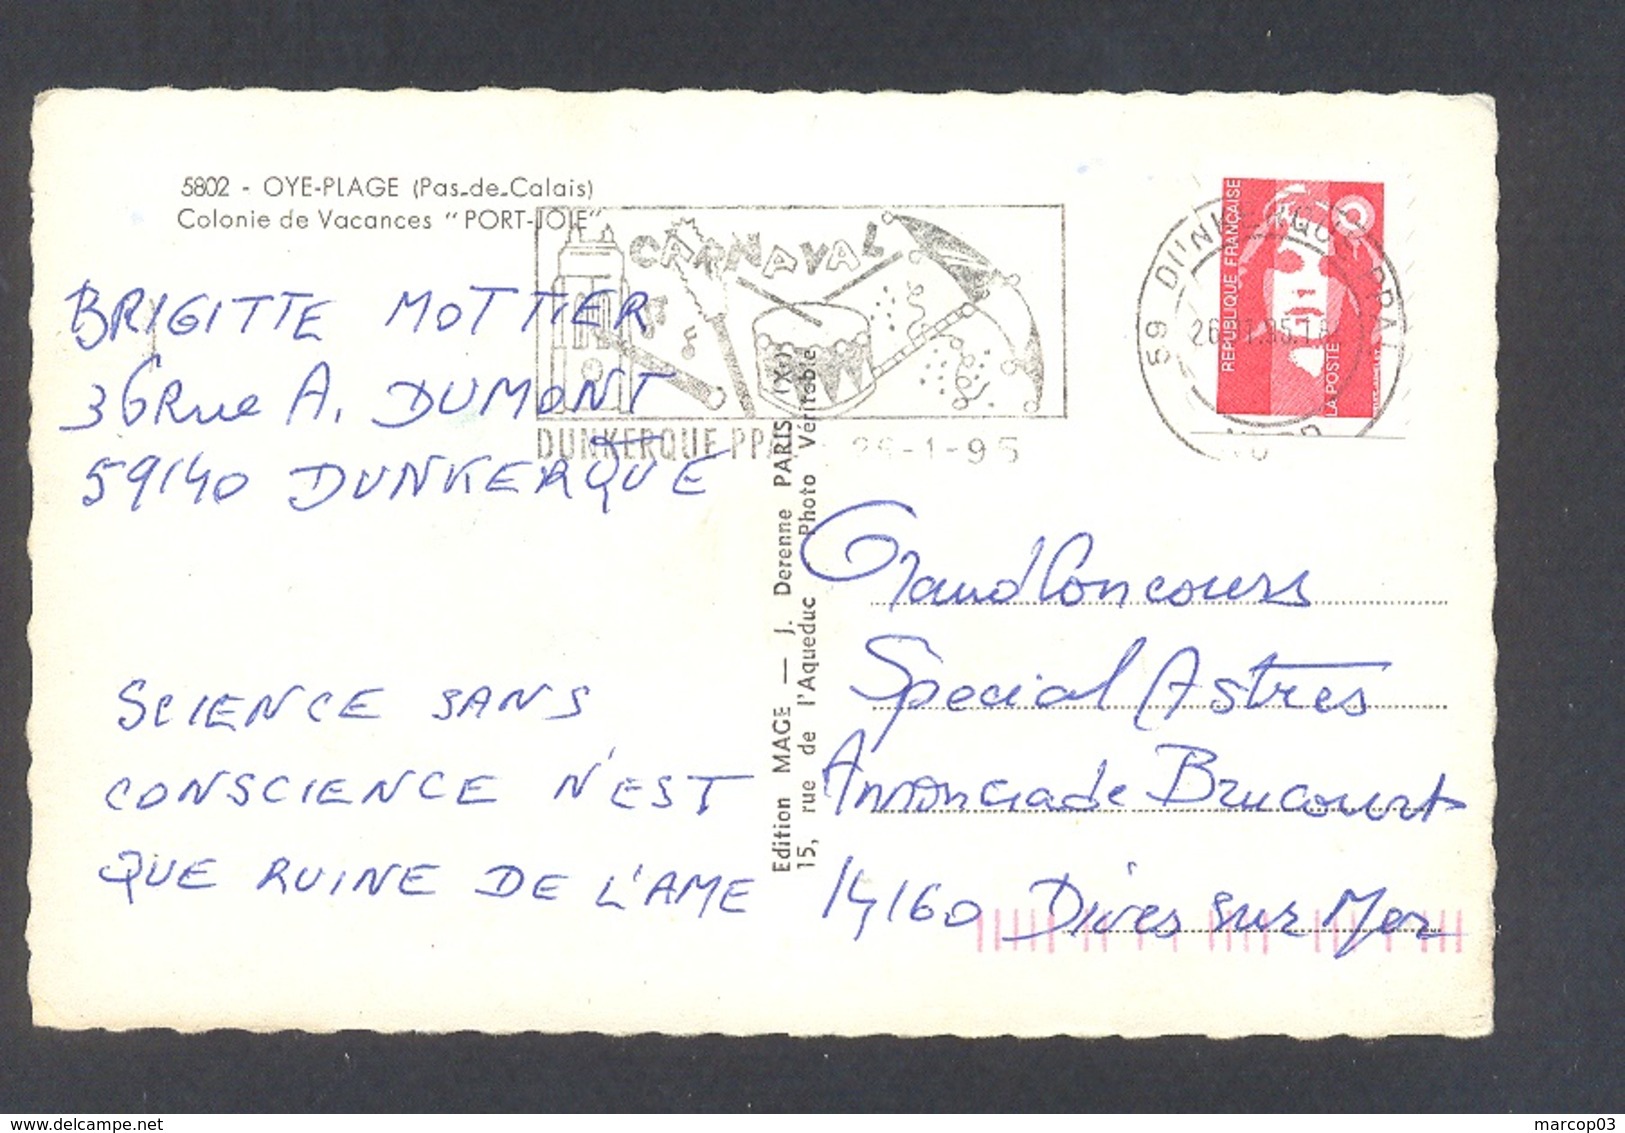 5802 - OYE-PLAGE (Pas-de-Calais)
Colonie de Vacances "PORT-JOIE"
BRIGITTE MOTTIER
36 Rue A. DUMONT
59140 DUNKERQUE
SCIENCE SANS
CONSCIENCE N'EST
QUE RUINE DE L'AME
CARNAVAL
DUNKERQUE PPAL 26-1-95
Edition MAGE — J. Derenne PARIS (Xe)
15, rue de l'Aqueduc Photo Véritable
59 DUNKERQUE PPAL
NORD
REPUBLIQUE FRANÇAISE
LA POSTE
Grand Concours
Special Astres
Annonciade Brucourt
14160 Dives sur Mer
marcop03